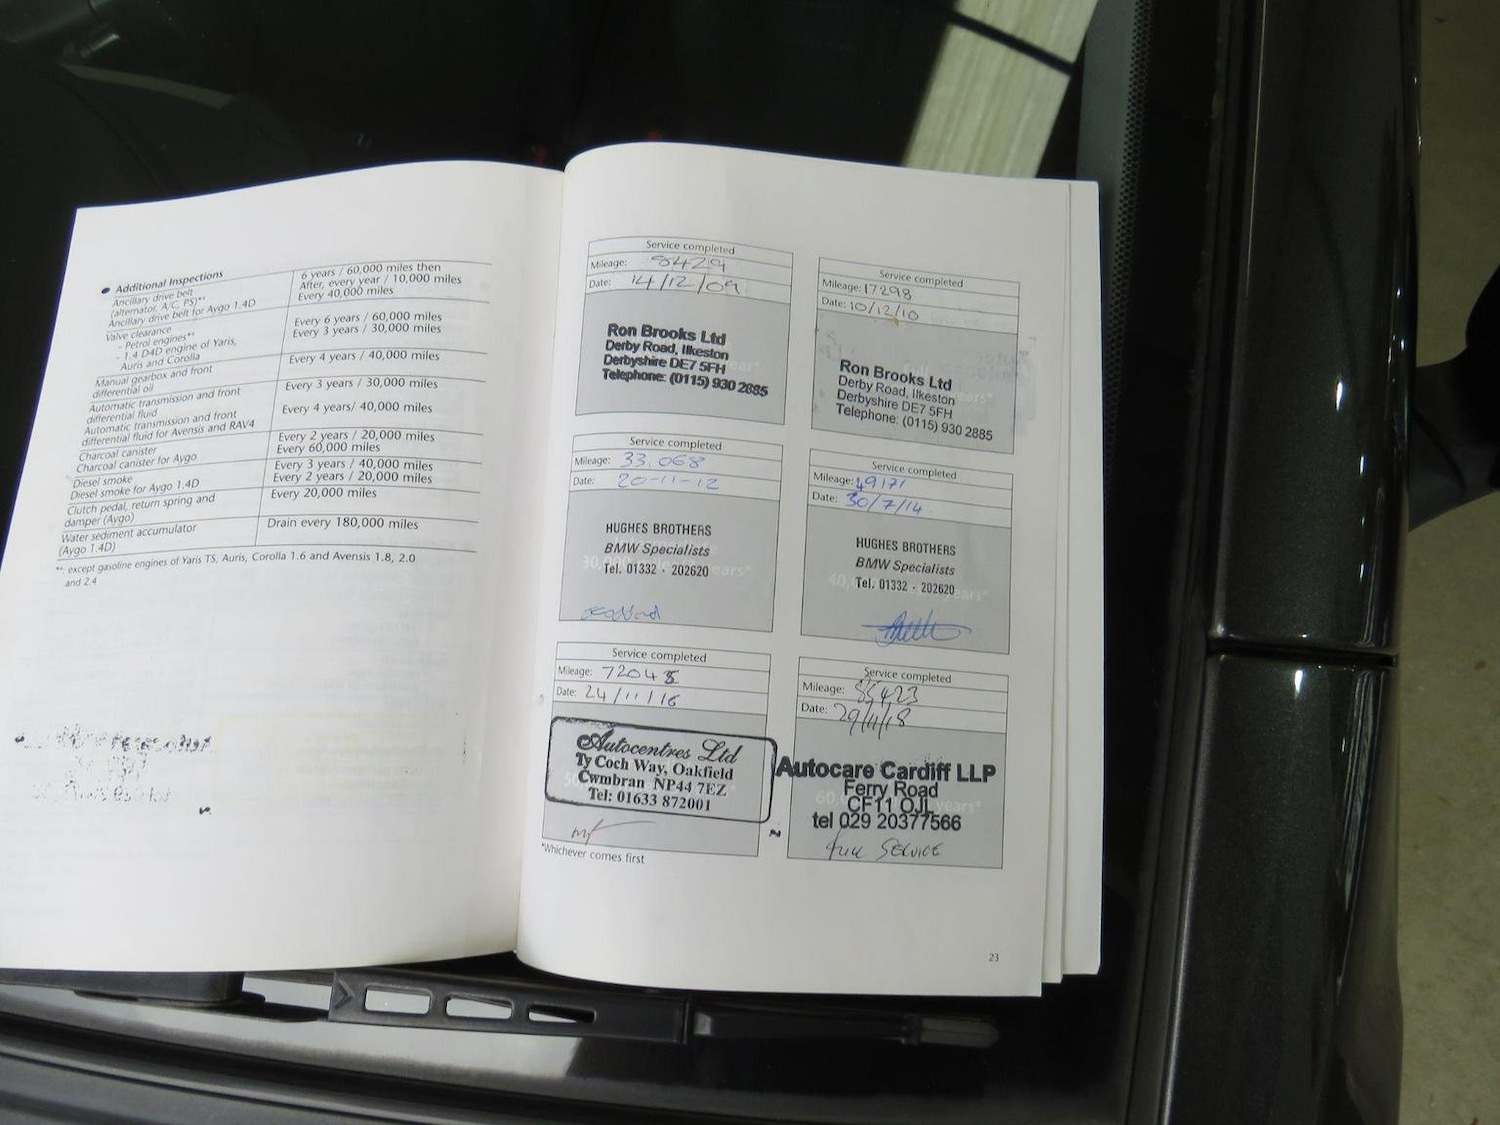 Additional Inspections
Ancillary drive belt
(alternator, A/C, PS)**
Ancillary drive belt for Aygo 1.4D
Valve clearance
- Petrol engines**
- 1.4 D4D engine of Yaris,
Auris and Corolla
Manual gearbox and front
differential oil
Automatic transmission and front
differential fluid
Automatic transmission and front
differential fluid for Avensis and RAV4
Charcoal canister
Charcoal canister for Aygo
Diesel smoke
Diesel smoke for Aygo 1.4D
Clutch pedal, return spring and
damper (Aygo)
Water sediment accumulator
(Aygo 1.4D)
6 years / 60,000 miles then
After, every year / 10,000 miles
Every 40,000 miles
Every 6 years / 60,000 miles
Every 3 years / 30,000 miles
Every 4 years / 40,000 miles
Every 3 years / 30,000 miles
Every 4 years/ 40,000 miles
Every 2 years / 20,000 miles
Every 60,000 miles
Every 3 years / 40,000 miles
Every 2 years / 20,000 miles
Every 20,000 miles
Drain every 180,000 miles
**. except gasoline engines of Yaris TS, Auris, Corolla 1.6 and Avensis 1.8, 2.0
and 2.4
Service completed
Mileage: 8429
Date: 14/12/09
Ron Brooks Ltd
Derby Road, Ilkeston
Derbyshire DE7 5FH
Telephone: (0115) 930 2885
Service completed
Mileage: 17298
Date: 10/12/10
Ron Brooks Ltd
Derby Road, Ilkeston
Derbyshire DE7 5FH
Telephone: (0115) 930 2885
Service completed
Mileage: 33,068
Date: 20-11-12
HUGHES BROTHERS
BMW Specialists
Tel. 01332 · 202620
Service completed
Mileage: 49171
Date: 30/7/14
HUGHES BROTHERS
BMW Specialists
Tel. 01332 · 202620
Service completed
Mileage: 72048
Date: 24/11/16
Autocentres Ltd
Ty Coch Way, Oakfield
Cwmbran NP44 7EZ
Tel: 01633 872001
Service completed
Mileage:
Date: 29/11/18
Autocare Cardiff LLP
Ferry Road
CF11 OJL
tel 029 20377566
full SERVICE
*Whichever comes first
23